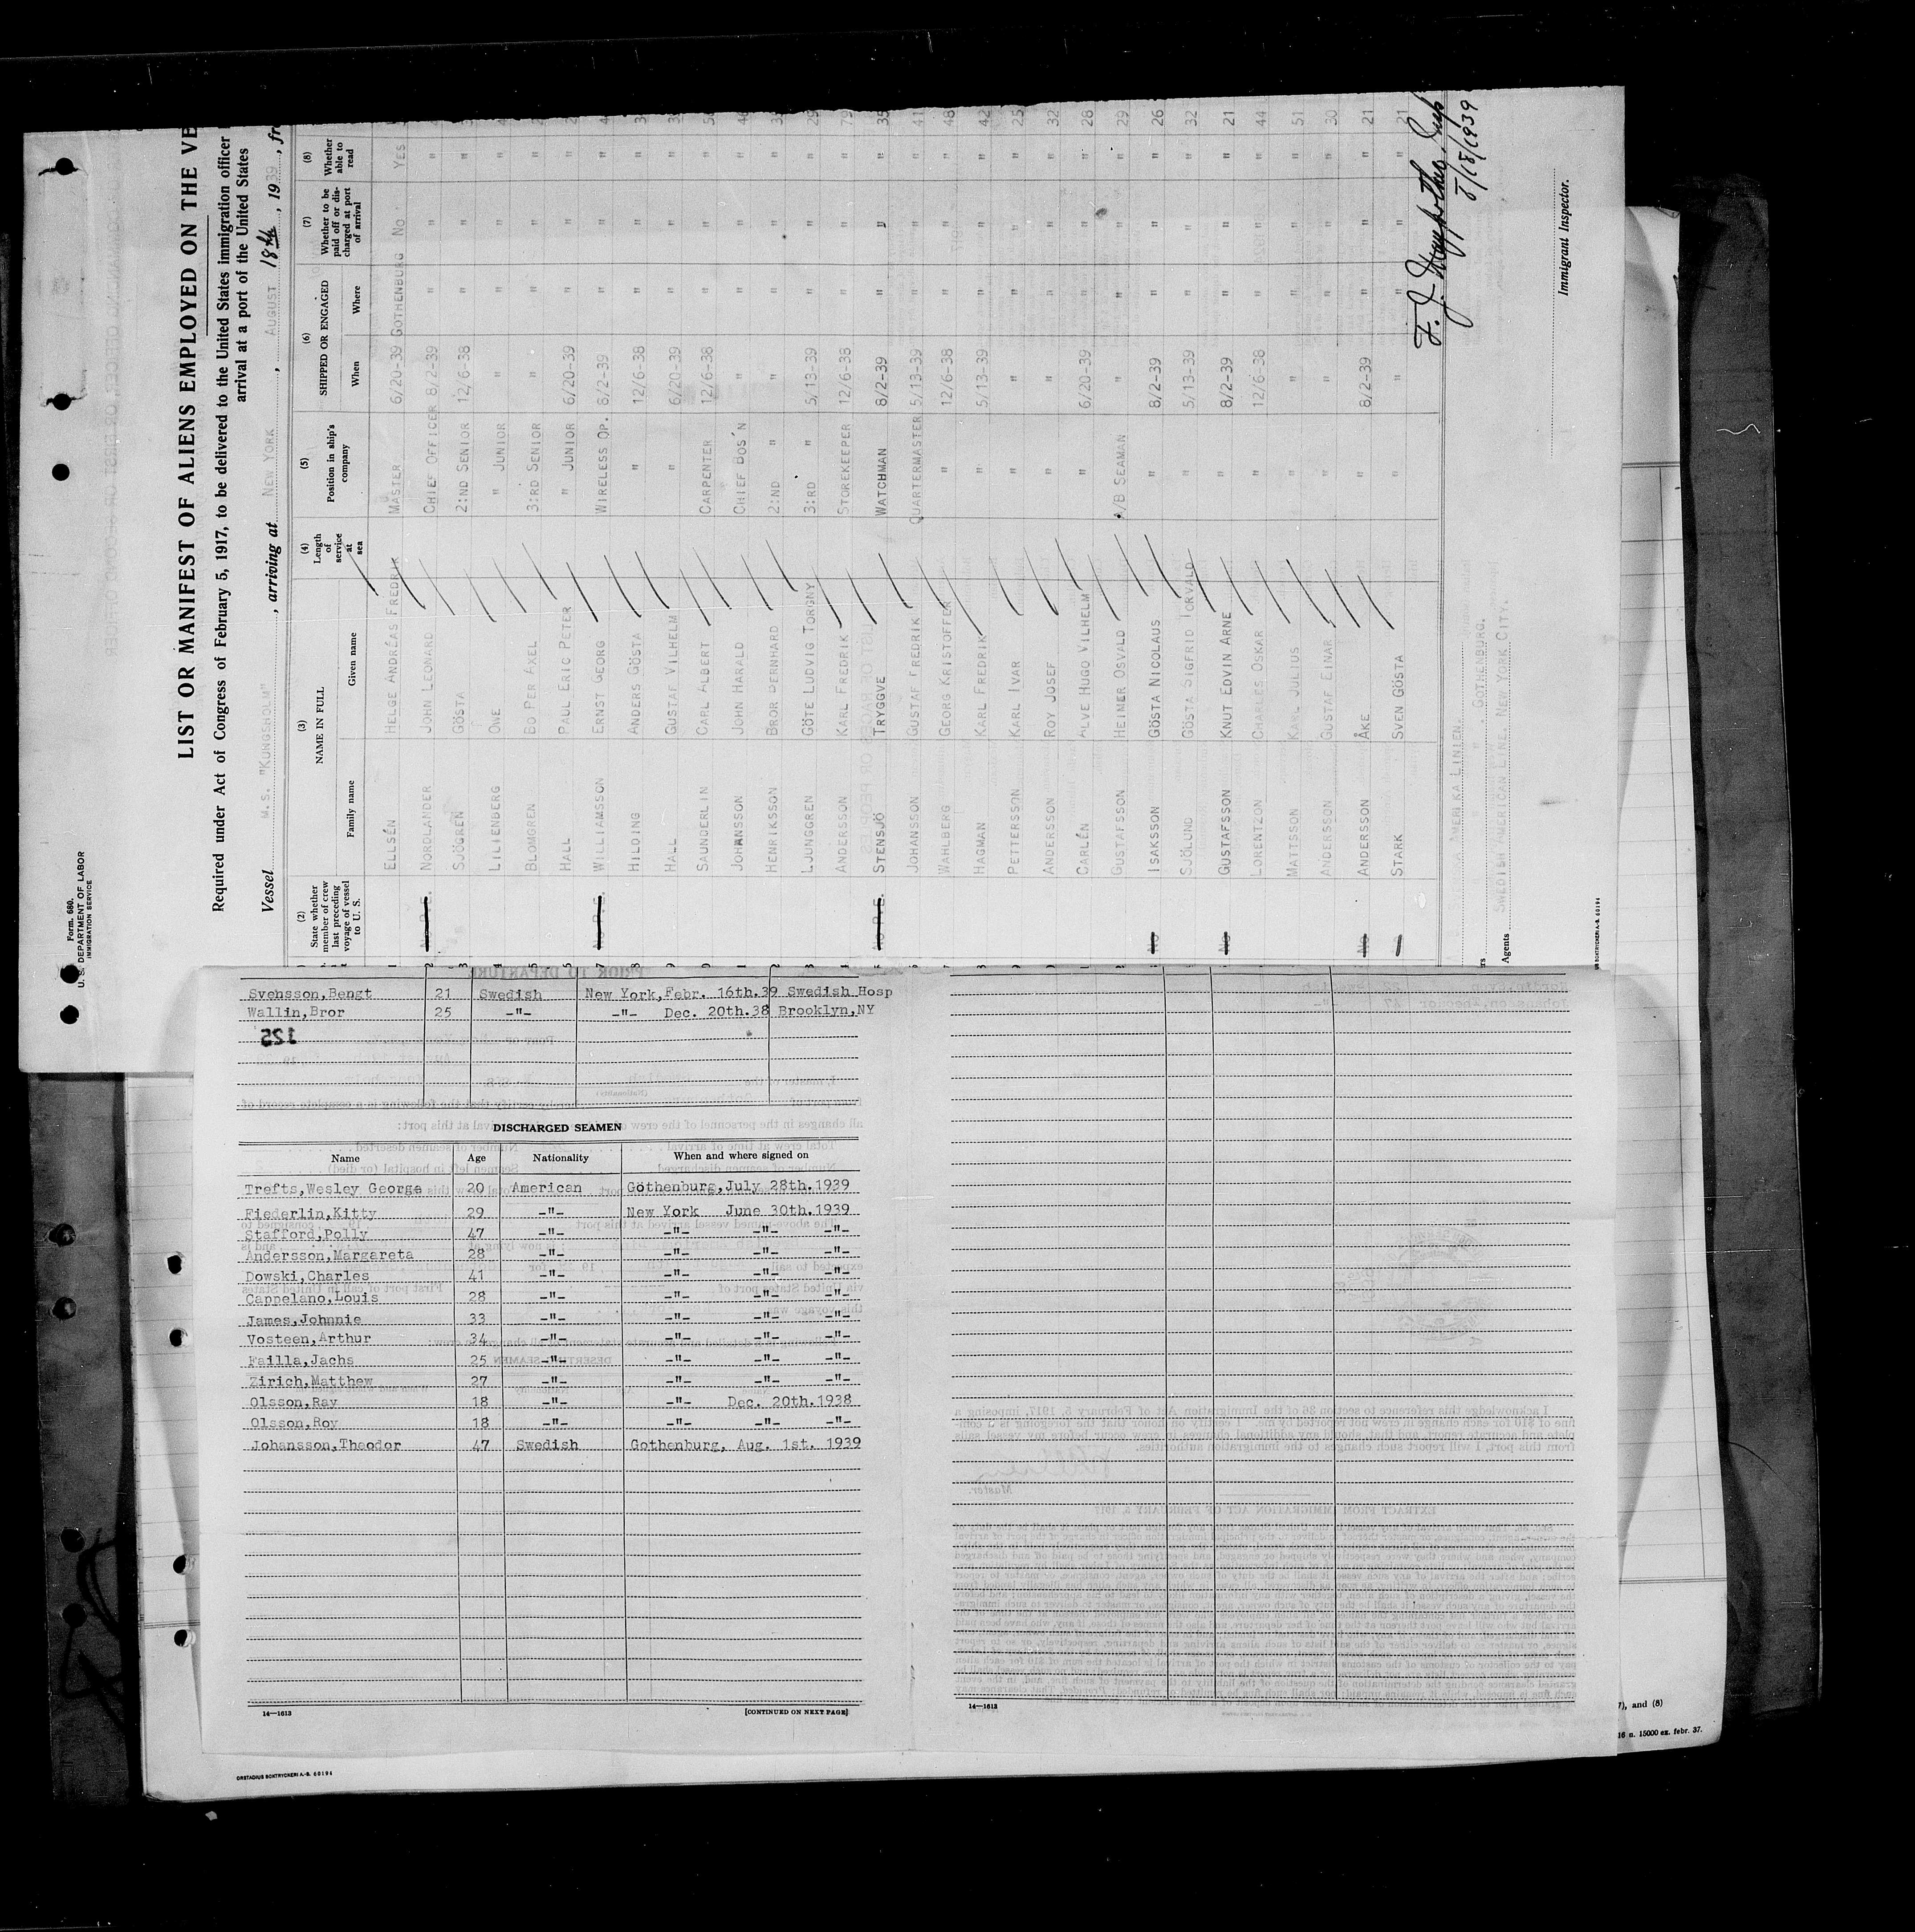 Form. 680.
U. S. DEPARTMENT OF LABOR
IMMIGRATION SERVICE
LIST OR MANIFEST OF ALIENS EMPLOYED ON THE VE
Required under Act of Congress of February 5, 1917, to be delivered to the United States immigration officer
arrival at a port of the United States
Vessel M.S. "KUNGSHOLM", arriving at NEW YORK, AUGUST 18th, 1939, fr
(2) (3) (4) (5) (6) (7) (8)
State whether member of crew last preceding voyage of vessel to U. S. NAME IN FULL Length of service at sea Position in ship's company SHIPPED OR ENGAGED Whether to be paid off or discharged at port of arrival Whether able to read
Family name Given name When Where
1 ELLSÉN HELGE ANDRÉAS FREDRIK MASTER 6/20-39 GOTHENBURG NO. YES
2 No P.E. NORDLANDER JOHN LEONARD CHIEF OFFICER 8/2-39 " " "
3 SJÖGREN GÖSTA 2:ND SENIOR 12/6-38 " " "
4 LILIENBERG OWE " JUNIOR " " " "
5 BLOMGREN BO PER AXEL 3:RD SENIOR " " " "
6 HALL PAUL ERIC PETER " JUNIOR 6/20-39 " " "
7 No P.E. WILLIAMSSON ERNST GEORG WIRELESS OP. 8/2-39 " " "
8 HILDING ANDERS GÖSTA " 12/6-38 " " "
9 HALL GUSTAF VILHELM " 6/20-39 " " "
SAUNDERLIN CARL ALBERT CARPENTER 12/6-38 " " "
1 JOHANSSON JOHN HARALD CHIEF BOS'N " " " "
2 HENRIKSSON BROR BERNHARD 2:ND " " " " "
3 LJUNGGREN GÖTE LUDVIG TORGNY 3:RD " 5/13-39 " " " 29
4 ANDERSSON KARL FREDRIK STOREKEEPER 12/6-38 " " " 79
5 No P.E. STENSJÖ TRYGGVE WATCHMAN 8/2-39 " " " 35
JOHANSSON GUSTAF FREDRIK QUARTERMASTER 5/13-39 " " " 41
7 WAHLBERG GEORG KRISTOFFER " 12/6-38 " " " 48
HAGMAN KARL FREDRIK " 5/13-39 " " " 42
PETTERSSON KARL IVAR " " " " " 25
ANDERSSON ROY JOSEF " " " " " 32
CARLÉN ALVE HUGO VILHELM " 6/20-39 " " " 28
GUSTAFSSON HEIMER OSVALD A/B SEAMAN " " " 29
No ISAKSSON GÖSTA NICOLAUS " 8/2-39 " " " 26
SJÖLUND GÖSTA SIGFRID TORVALD " 5/13-39 " " " 32
No GUSTAFSSON KNUT EDVIN ARNE " 8/2-39 " " " 21
LORENTZON CHARLES OSKAR " 12/6-38 " " " 44
MATTSSON KARL JULIUS " " " " " 51
ANDERSSON GUSTAF EINAR " " " " " 30
No ANDERSSON ÅKE " 8/2-39 " " " 21
STARK SVEN GÖSTA " " " " " 21
AMERIKA LINIEN, GOTHENBURG.
Agents SWEDISH AMERICAN LINE, NEW YORK CITY.
8/18/1939
Immigrant Inspector.
Svensson,Bengt 21 Swedish New York,Febr. 16th.39 Swedish Hosp
Wallin,Bror 25 -"- -"- Dec. 20th.38 Brooklyn,NY
125
DISCHARGED SEAMEN
Name Age Nationality When and where signed on
Trefts,Wesley George 20 American Gothenburg,July 28th.1939
Fiederlin,Kitty 29 -"- New York June 30th.1939
Stafford,Polly 47 -"- -"- -"- -"-
Andersson,Margareta 28 -"- -"- -"- -"-
Dowski,Charles 41 -"- -"- -"- -"-
Cappelano,Louis 28 -"- -"- -"- -"-
James,Johnnie 33 -"- -"- -"- -"-
Vosteen,Arthur 34 -"- -"- -"- -"-
Failla,Jachs 25 -"- -"- -"- -"-
Zirich,Matthew 27 -"- -"- -"- -"-
Olsson,Ray 18 -"- -"- Dec. 20th.1938
Olsson,Roy 18 -"- -"- -"- -"-
Johansson,Theodor 47 Swedish Gothenburg, Aug. 1st. 1939
14—1613 [CONTINUED ON NEXT PAGE]
14—1613
7), and (8)
16 n. 15000 ex. febr. 37.
ORSTADIUS BOKTRYCKERI A.-B. 60194